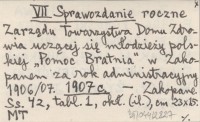 VII Sprawozdanie roczne
Zarządu Towarzystwa Domu Zdro-
wia uczącej się młodzieży pol-
skiej „Pomoc Bratnia" w Zako-
panem za rok administracyjny
1906/07. 1907 r. — Zakopane
Ss. 42, tabl. 1, okł. (il.), cm 23x15.
MT